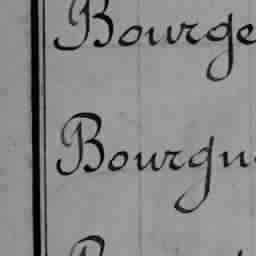 Bourge
Bourgu